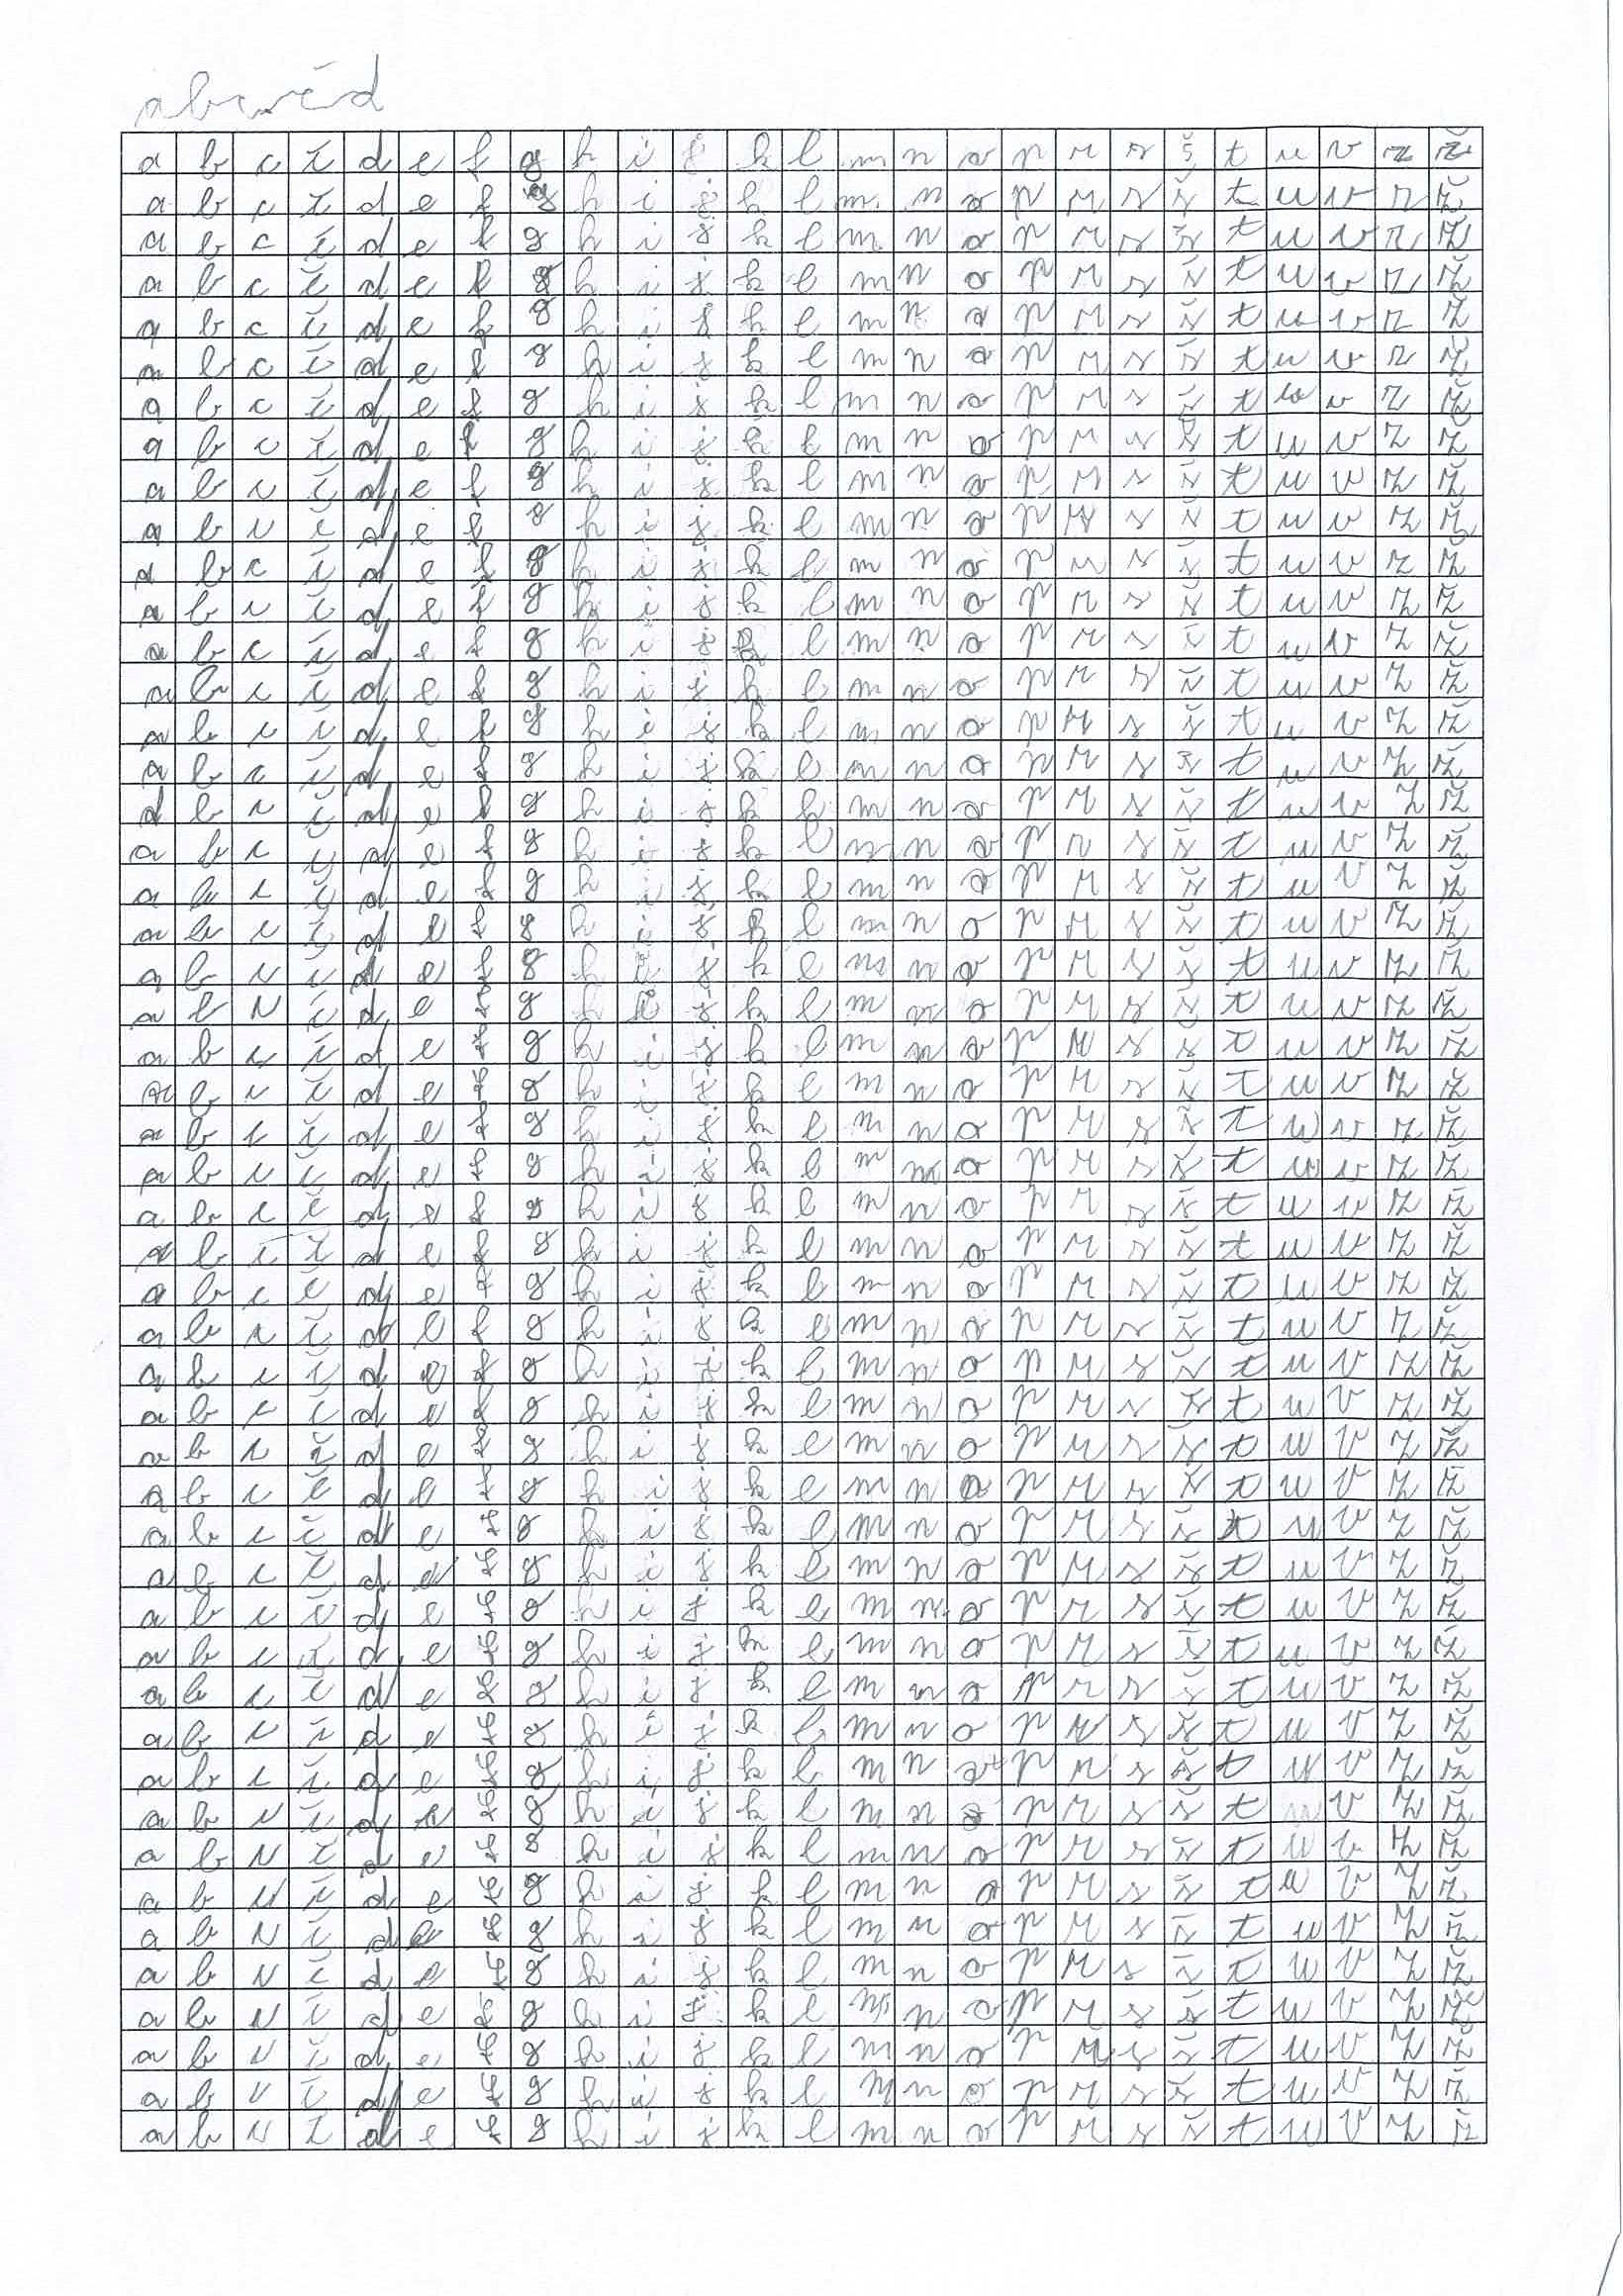 abcčd
a b c č d e f g h i j k l m n o p r s š t u v z ž
a b c č d e f g h i j k l m n o p r s š t u v z ž
a b c č d e f g h i j k l m n o p r s š t u v z ž
a b c č d e f g h i j k l m n o p r s š t u v z ž
a b c č d e f g h i j k l m n o p r s š t u v z ž
a b c č d e f g h i j k l m n o p r s š t u v z ž
a b c č d e f g h i j k l m n o p r s š t u v z ž
a b c č d e f g h i j k l m n o p r s š t u v z ž
a b c č d e f g h i j k l m n o p r s š t u v z ž
a b c č d e f g h i j k l m n o p r s š t u v z ž
a b c č d e f g h i j k l m n o p r s š t u v z ž
a b c č d e f g h i j k l m n o p r s š t u v z ž
a b c č d e f g h i j k l m n o p r s š t u v z ž
a b c č d e f g h i j k l m n o p r s š t u v z ž
a b c č d e f g h i j k l m n o p r s š t u v z ž
a b c č d e f g h i j k l m n o p r s š t u v z ž
a b c č d e f g h i j k l m n o p r s š t u v z ž
a b c č d e f g h i j k l m n o p r s š t u v z ž
a b c č d e f g h i j k l m n o p r s š t u v z ž
a b c č d e f g h i j k l m n o p r s š t u v z ž
a b c č d e f g h i j k l m n o p r s š t u v z ž
a b c č d e f g h i j k l m n o p r s š t u v z ž
a b c č d e f g h i j k l m n o p r s š t u v z ž
a b c č d e f g h i j k l m n o p r s š t u v z ž
a b c č d e f g h i j k l m n o p r s š t u v z ž
a b c č d e f g h i j k l m n o p r s š t u v z ž
a b c č d e f g h i j k l m n o p r s š t u v z ž
a b c č d e f g h i j k l m n o p r s š t u v z ž
a b c č d e f g h i j k l m n o p r s š t u v z ž
a b c č d e f g h i j k l m n o p r s š t u v z ž
a b c č d e f g h i j k l m n o p r s š t u v z ž
a b c č d e f g h i j k l m n o p r s š t u v z ž
a b c č d e f g h i j k l m n o p r s š t u v z ž
a b c č d e f g h i j k l m n o p r s š t u v z ž
a b c č d e f g h i j k l m n o p r s š t u v z ž
a b c č d e f g h i j k l m n o p r s š t u v z ž
a b c č d e f g h i j k l m n o p r s š t u v z ž
a b c č d e f g h i j k l m n o p r s š t u v z ž
a b c č d e f g h i j k l m n o p r s š t u v z ž
a b c č d e f g h i j k l m n o p r s š t u v z ž
a b c č d e f g h i j k l m n o p r s š t u v z ž
a b c č d e f g h i j k l m n o p r s š t u v z ž
a b c č d e f g h i j k l m n o p r s š t u v z ž
a b c č d e f g h i j k l m n o p r s š t u v z ž
a b c č d e f g h i j k l m n o p r s š t u v z ž
a b c č d e f g h i j k l m n o p r s š t u v z ž
a b c č d e f g h i j k l m n o p r s š t u v z ž
a b c č d e f g h i j k l m n o p r s š t u v z ž
a b c č d e f g h i j k l m n o p r s š t u v z ž
a b c č d e f g h i j k l m n o p r s š t u v z ž